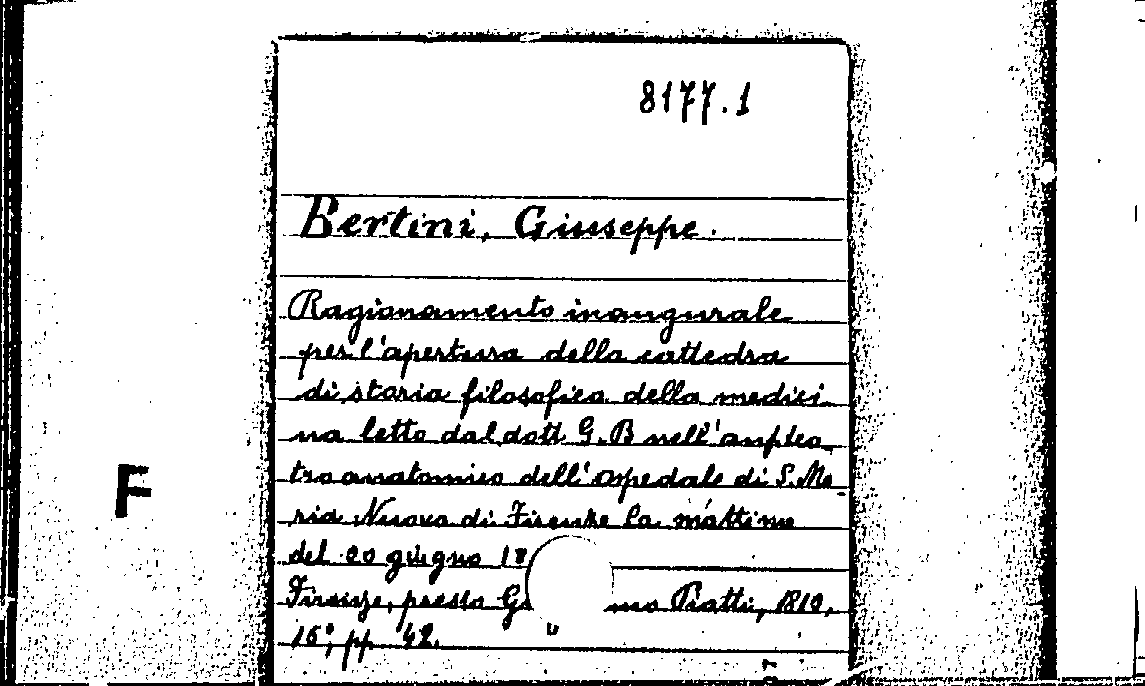 8177.1
Bertini, Giuseppe.
Ragionamento inaugurale
per l'apertura della cattedra
di storia filosofica della medici-
na letto dal dott. G. B nell'anfitea-
tro anatomico dell'ospedale di S. Ma-
ria Nuova di Firenze la mattina
del 20 giugno 18
F
Firenze, presso Gu mo Piatti, 1810,
16°, pp. 42.